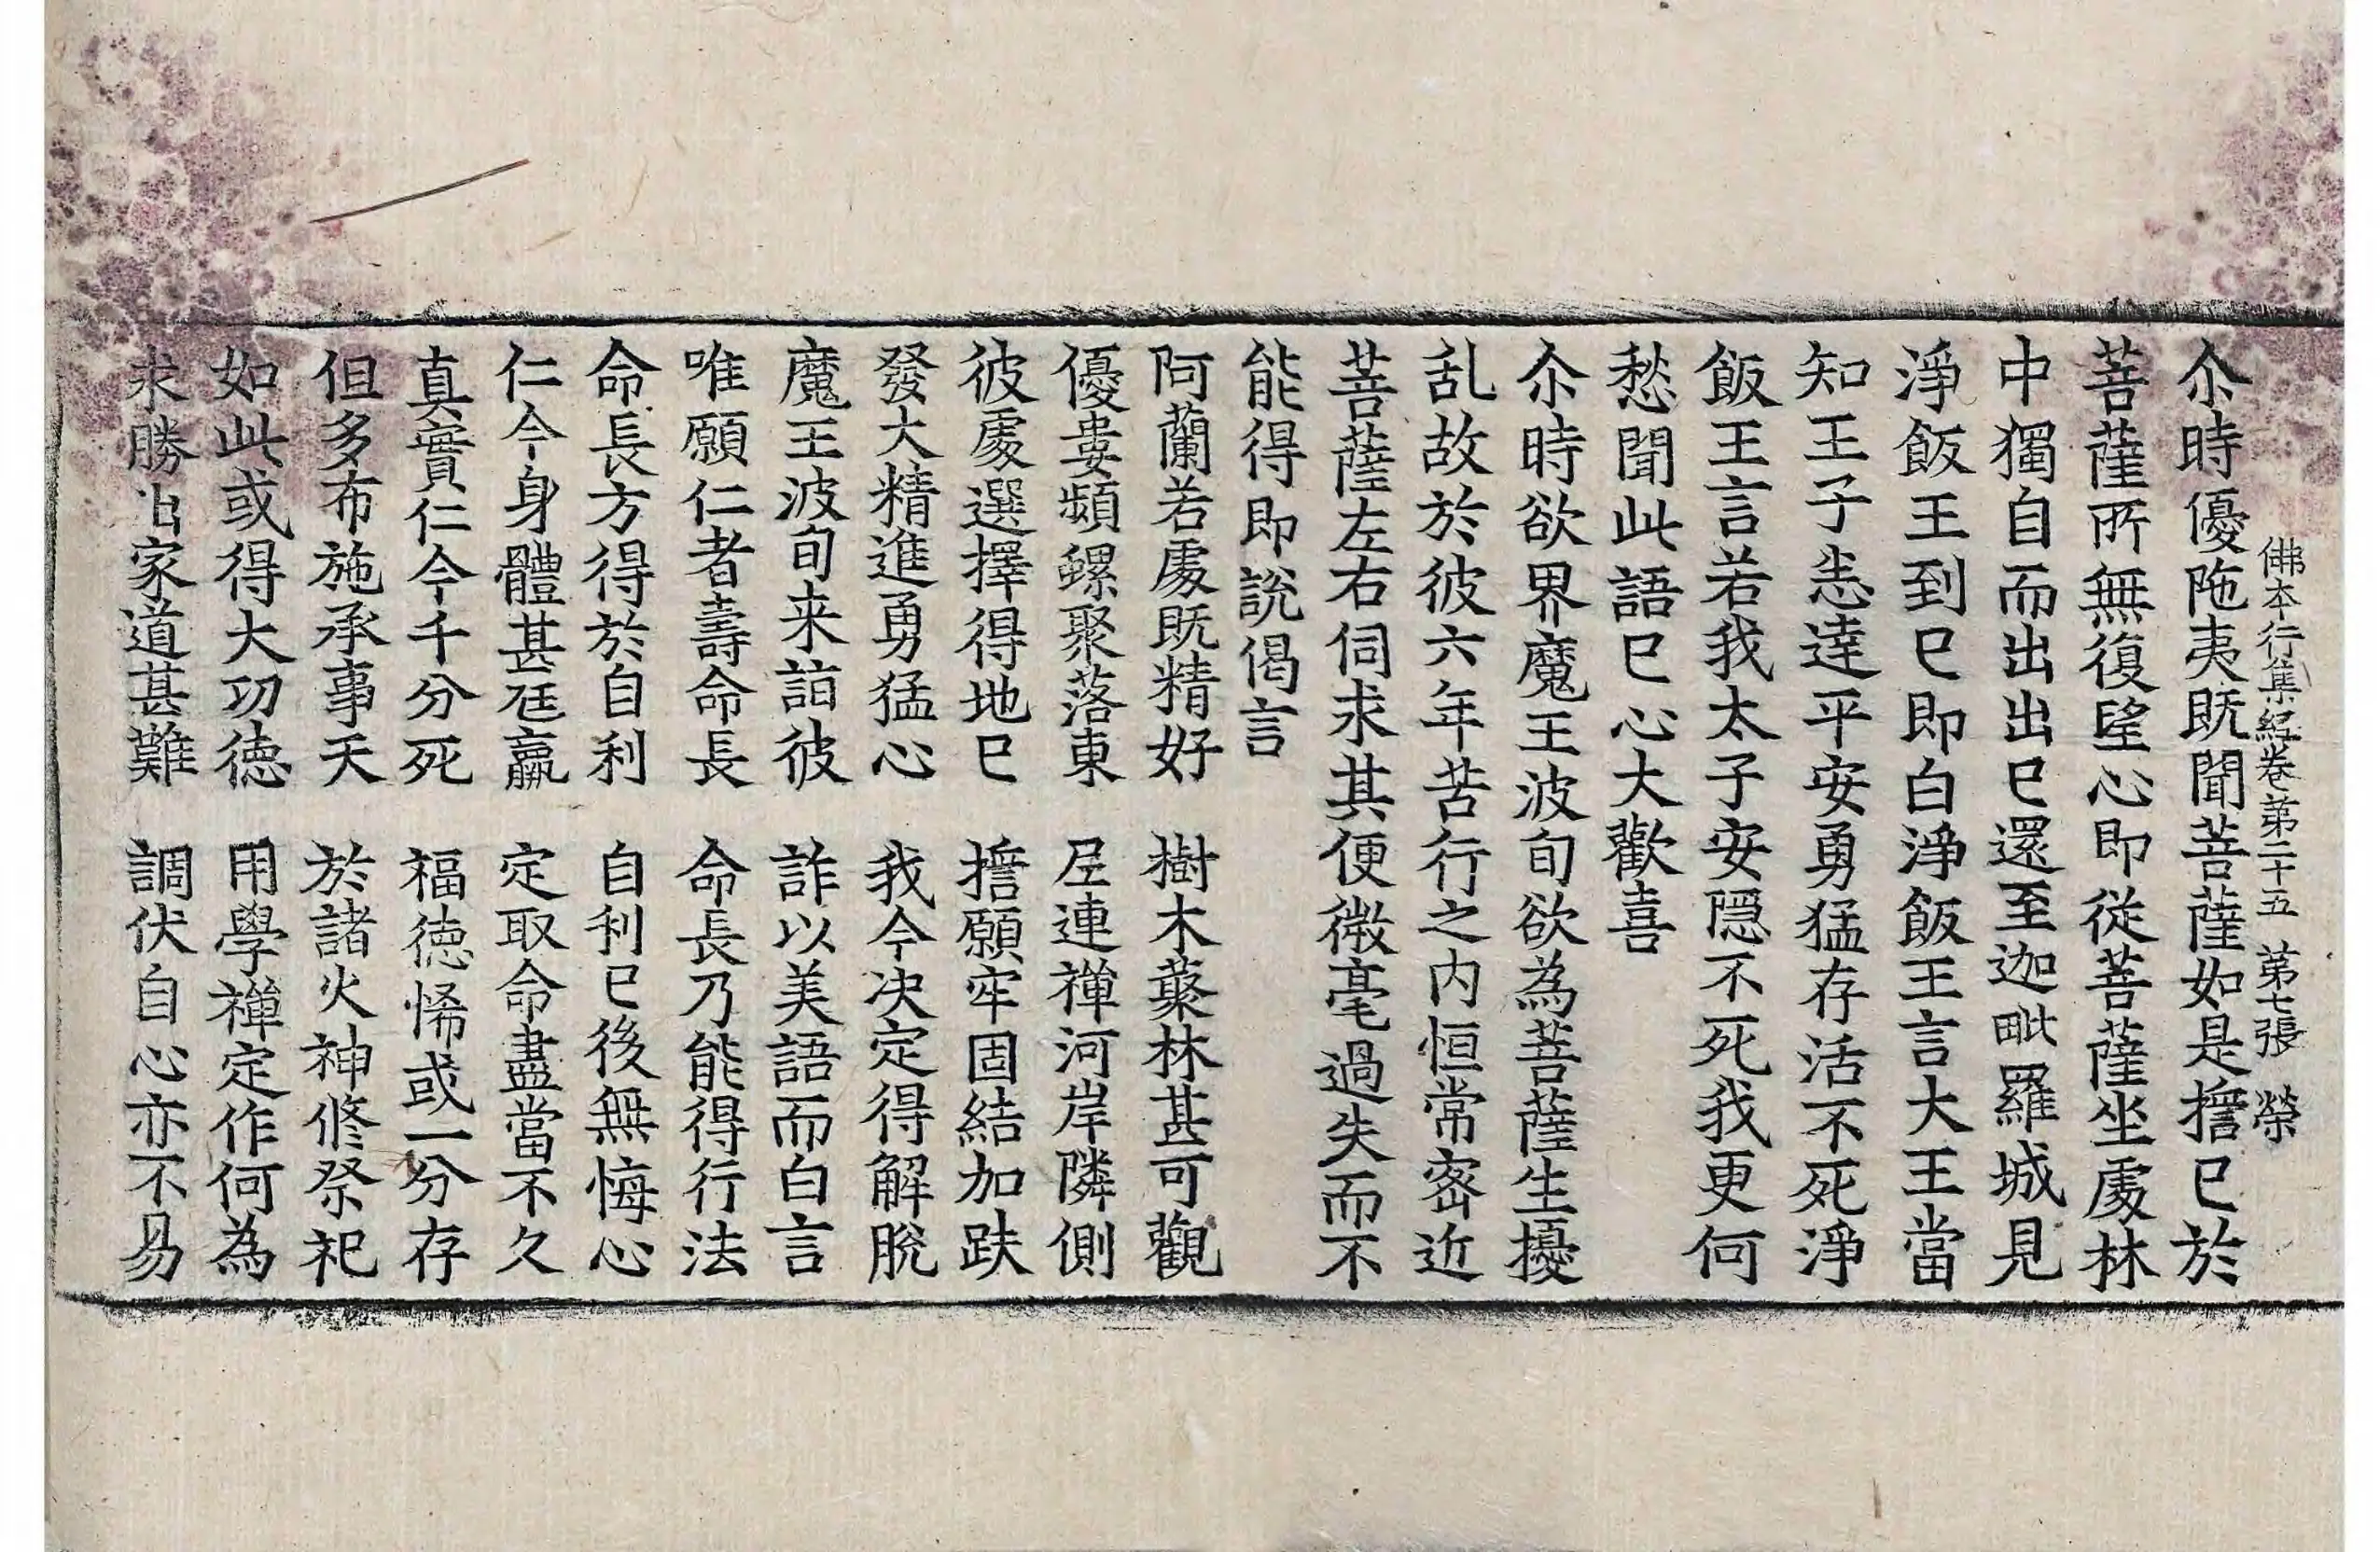 佛本行集經卷第二十五 第七張 榮
尒時優陁夷既聞菩薩如是擔已於
菩薩所無復望心即從菩薩坐處林
中獨自而出出已還至迦毗羅城見
淨飯王到已即白淨飯王言大王當
知王子恙達平安勇猛存活不死淨
飯王言若我太子安隱不死我更何
愁聞此語已心大歡喜
尒時欲界魔王波旬欲為菩薩生擾
乱故於彼六年苦行之内恒常密近
菩薩左右伺求其便微毫過失而不
能得即說偈言
阿蘭若處既精好 樹木藂林甚可觀
優婁頻螺聚落東 尼連禪河岸隣側
彼處選擇得地已 擔願牢固結加趺
發大精進勇猛心 我今决定得解脫
魔王波旬来詣彼 詐以美語而白言
唯願仁者壽命長 命長乃能得行法
命長方得於自利 自利已後無悔心
仁今身體甚尫羸 定取命盡當不久
真實仁今千分死 福德悕或一分存
但多布施承事天 於諸火神修祭祀
如此或得大功德 用學禪定作何為
求勝出家道甚難 調伏自心亦不易